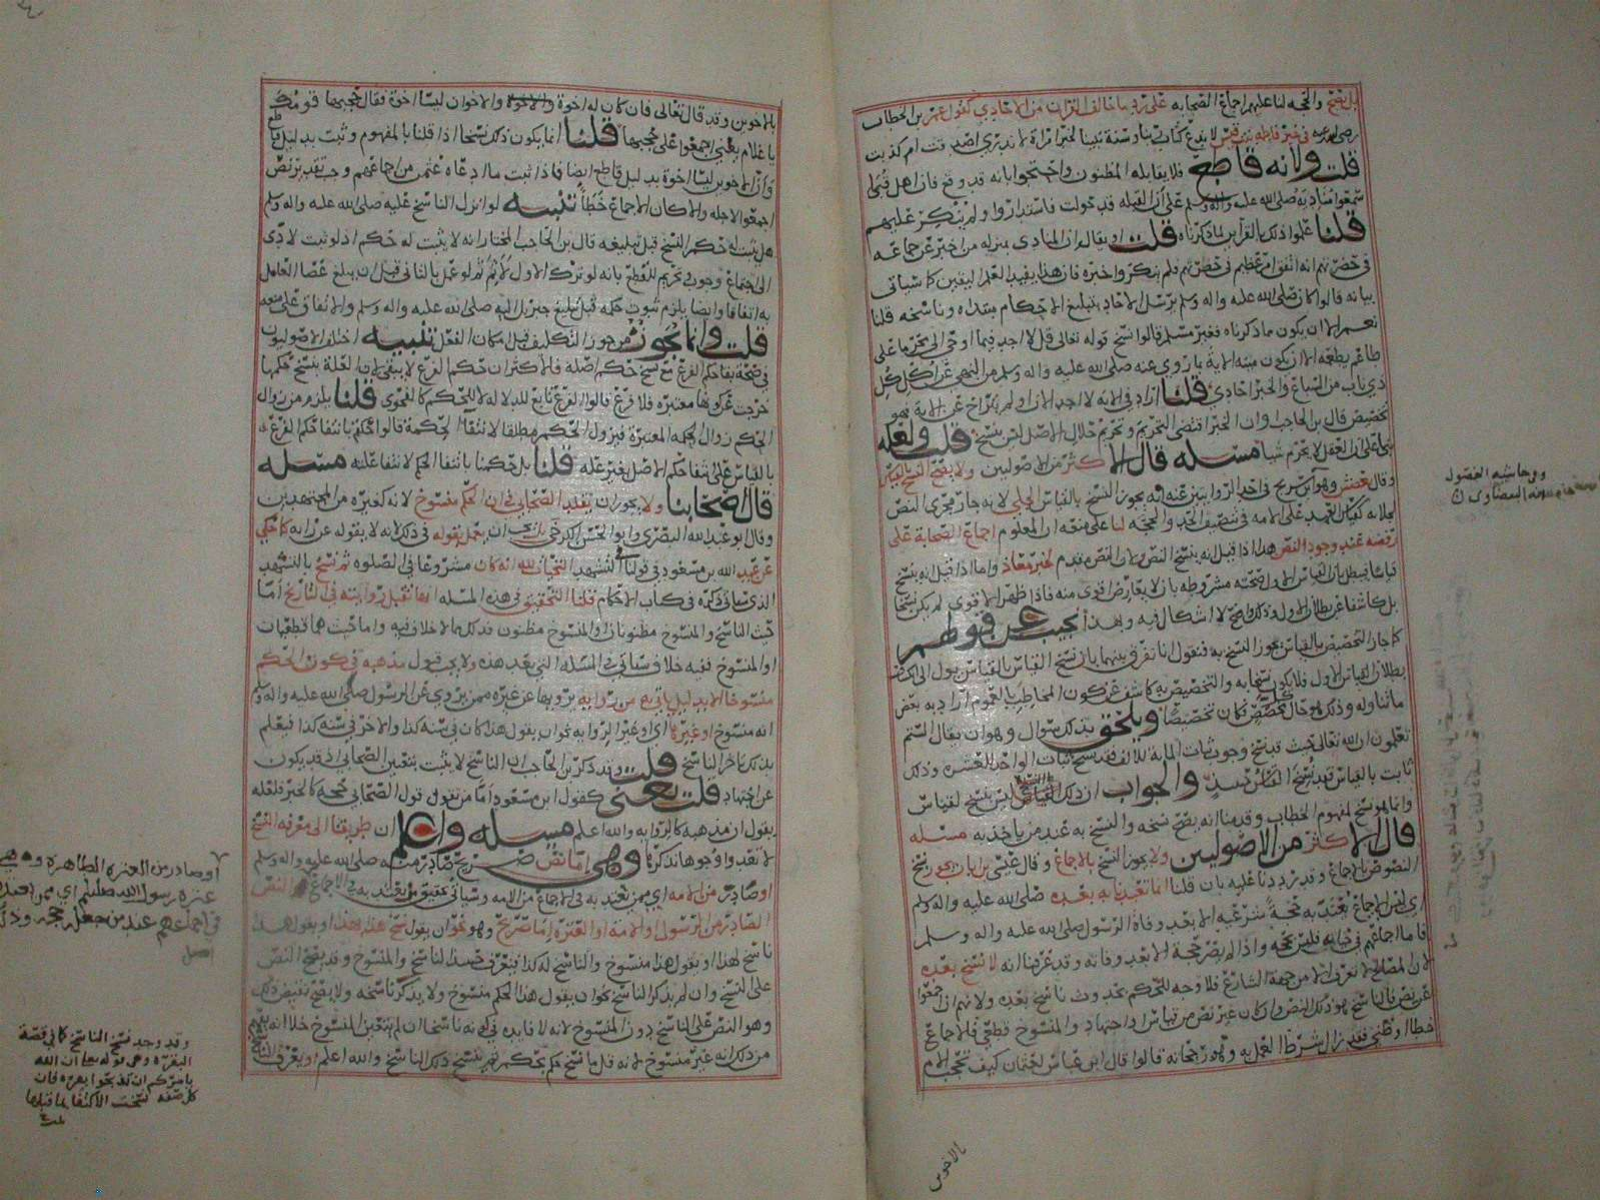 بل يصح والحجة لنا عليهم اجماع الصحابه على رد ما خالف القران من الاحادي كقول عمر بن الخطاب
رضي الله عنه في خبر فاطمه بنت قيس لا ندع كتاب ربنا وسنة نبينا لخبر امراة لا ندري اصدقت ام كذبت
قلت ولانه قاطع فلا يقابله المظنون واحتجوا بانه قد وقع فان اهل قبا
سمعوا مناديه صلى الله عليه واله وسلم على ان القبله قد حولت فاستداروا ولم ينكر عليهم
قلنا علموا ذلك بالقراين لما ذكرناه قلت او يقال ان المنادي بمنزله من اخبر عن جماعه
في حضرتهم انه اتفق امر عظيم في حضرتهم فلم ينكروا خبره فان هذا يفيد العلم اليقين كما سياتي
بيانه قالوا كان صلى الله عليه واله وسلم يرسل الاحاد بتبليغ الاحكام مبتداه وناسخه قلنا
نعم الا ان يكون ما ذكرناه فغير مسلم قالوا نسخ قوله تعالى قل لا اجد فيما اوحي الي محرما على
طاعم يطعمه الا ان يكون ميته الاية بما روي عنه صلى الله عليه واله وسلم من النهي عن اكل كل
ذي ناب من السباع والخبر احادي قلنا اراد في الاية لا اجد الان ولم يخرج عن الاية فهو
تخصيص قال بن الحاجب وان الخبر اقتضى التحريم وتحريم حلال الاصل ليس بنسخ قلت ولعله
بنى على ان العقل لا يحرم شيا مسئله قال الاكثر من الاصوليين ولا يصح النسخ بالقياس
وقال بعضهم وهو ابن سريج في احد الروايتين عنه انه يجوز النسخ بالقياس الجلي لانه جار مجرى النص
لجلائه كقياس العبد على الامه في تنصيف الحد والحجه لنا على منعه ان المعلوم اجماع الصحابة على
رفضه عند وجود النص هذا اذا قيل انه ينسخ النص ولان النص مقدم لخبر معاذ واما اذا قيل انه ينسخ
قياسا فيبطل بان القياس الاول صحته مشروطه بان لا يعارض اقوى منه فاذا ظهر الاقوى لم يكن نسخا
بل كاشفا عن بطلان الاول وذلك واضح لا اشكال فيه وبهذا نجيب عن قولهم
كما جاز التخصيص بالقياس يجوز النسخ به فنقول انا نفرق بينهما بان نسخ القياس بالقياس يول الى كشف
بطلان القياس الاول فلا يكون نسخا به والتخصيص به كاشف عن كون المخاطب بالعموم اراد به بعض
ما تناوله وذلك هو حال كل مخصص كان تخصيصا ويلحق بذلك سوال وهو ان يقال الستم
تعلمون ان الله تعالى حيث قد نسخ وجوب ثبات المايه للالف فقد نسخ ثبات الواحد للعشره وذلك
ثابت بالقياس فقد نسخ القياس حينئذ والجواب ان ذلك النسخ ليس نسخ لقياس
وانما هو نسخ لمفهوم الخطاب وقد منا انه يصح نسخه والنسخ به عند من ياخذ به مسئله
قال الاكثر من الاصوليين ولا يجوز النسخ بالاجماع وقال عيسى بن ابان يجوز نسخ
النصوص بالاجماع وقد رددنا عليه بان قلنا انما تعبدنا به بعده صلى الله عليه واله وسلم
اي ليس الاجماع يعتد به حجة شرعيه الا بعد وفاة الرسول صلى الله عليه واله وسلم
فاما اجماعهم في حياته فليس بحجه واذا لم يصر حجة الا بعد وفاته وقد عرفنا انه لا نسخ بعده
لان المصالح لا تعرف الا من جهة الشارع فلا وجه للحكم بحدوث ناسخ بعده ولانهم ان اجمعوا
عن نص فالناسخ هو ذلك النص وان كان عن غير نص من قياس او اجتهاد والمنسوخ قطعي فالاجماع
خطا او ظني فقد زال شرط العمل به وهو رجحانه قالوا قال ابن عباس لعثمان كيف تحجب الام
بالاخوين وقد قال تعالى فان كان له اخوة والاخوان ليسا اخوة فقال حجبها قومك
يا غلام يعني اجمعوا على حجبها قلنا انما يكون ذلك نسخا اذا قلنا بالمفهوم وثبت بدليل قاطع
وان الاخوين ليسا اخوة بدليل قاطع ايضا فاذا ثبت ما ادعاه عثمن من اجماعهم وجب تقدير نص
اجمعوا لاجله والا كان الاجماع خطأ تنبيه لو انزل الناسخ عليه صلى الله عليه واله وسلم
هل يثبت له حكم النسخ قبل تبليغه قال بن الحاجب المختار انه لا يثبت له حكم اذ لو ثبت لادى
الى اجتماع وجوب وتحريم للقطع بانه لو ترك الاول لأثم ثم لو عمل بالثاني قبل ان يبلغ عصا العامل
به اتفاقا وايضا يلزم ثبوت حكمه قبل تبليغ جبريل اليه صلى الله عليه واله وسلم والاتفاق على منعه
قلت وانما يجوزه من جوز التكليف قبل امكان الفعل تنبيه اختلف الاصوليون
في صحة بقا حكم الفرع مع نسخ حكم اصله فالاكثر ان حكم الفرع لا يبقى لان العلة بنسخ حكمها
خرجت عن كونها معتبره فلا فرع قالوا الفرع تابع للدلاله لا للحكم كالفحوى قلنا يلزم من زوال
الحكم زوال الحكمه المعتبرة فيزول الحكم مطلقا لانتفاء الحكمة قالوا حكمتم بانتفا حكم الفرع
بالقياس على انتفا حكم الاصل بغير عله قلنا بل حكمنا بانتفا الحكم لانتفا علته مسئله
قال اصحابنا ولا يجوز ان يقلد الصحابي في ان الحكم منسوخ لانه كغيره من المجتهدين
وقال ابو عبد الله البصري وابو الحسن الكرخي بل يجب ان يعمل بقوله في ذلك لانه لا يقوله عن رايه كما حكي
عن عبد الله بن مسعود في قولنا في التشهد التحيات لله انه كان مشروعا في الصلوه ثم نسخ بالتشهد
الذي سياتي ذكره في كتاب الاحكام قلنا التحقيق في هذه المسئله انها تقبل روايته في التاريخ اما
حيث الناسخ والمنسوخ مظنونان او المنسوخ مظنون فذلك مما لا خلاف فيه واما حيث هما قطعيان
او المنسوخ ففيه خلاف سياتي في المسئله التي بعد هذه ولا يجب قبول مذهبه في كون الحكم
منسوخا الا بدليل ياتي به من رواية يرويها عن غيره ممن يروي عن الرسول صلى الله عليه واله وسلم
انه منسوخ او غيرها اي او غير الروايه نحو ان يقول هذا كان في سنه كذا والاخر في سنه كذا فيعلم
بذلك تاخر الناسخ قلت وقد ذكر بن الحاجب ان الناسخ لا يثبت بتعيين الصحابي اذ قد يكون
عن اجتهاد قلت يعني كقول ابن مسعود اما من يقول قول الصحابي حجة كالخبر فلعله
يقول ان مذهبه كالروايه والله اعلم مسئله واعلم ان طريقنا الى معرفه النسخ
لا تعدوا وجوها تذكرها وهي اما نص صريح صادر منه صلى الله عليه واله وسلم
او صادر من الامه اي ممن يعتد به في الاجماع من الامه وسياتي تحقيق من يعتد به في الاجماع النص
الصادر من الرسول او الامة او العترة اما صريح وهو نحو ان يقول نسخ هذا بهذا او يقول هذا
ناسخ لهذا او يقول هذا منسوخ والناسخ له كذا فيعرف حينئذ الناسخ والمنسوخ وقد يصح النص
على النسخ وان لم يذكر الناسخ نحو ان يقول هذا الحكم منسوخ ولا يذكر ناسخه ولا يصح نقيض ذلك
وهو النص على الناسخ دون المنسوخ لانه لا فايده في كونه ناسخا ان لم يتعين المنسوخ خلا انه يعلم
من ذلك انه غير منسوخ لانه قل ما نسخ حكم بحكم ثم نسخ ذلك الناسخ والله اعلم ويعرف النسخ
وفي حاشيه الفصول
او صادر من العترة الطاهره وهي
عترة رسول الله صلعم اي ممن يعتد به
في اجماعهم عند من جعله حجه وذلك
اصل
وقد وجد نسخ الناسخ كما في قصة
البقره وهي قوله تعالى ان الله
يامركم ان تذبحوا بقره فان
كل صفه نسخت الاكتفا بما قبلها
بالاخوين